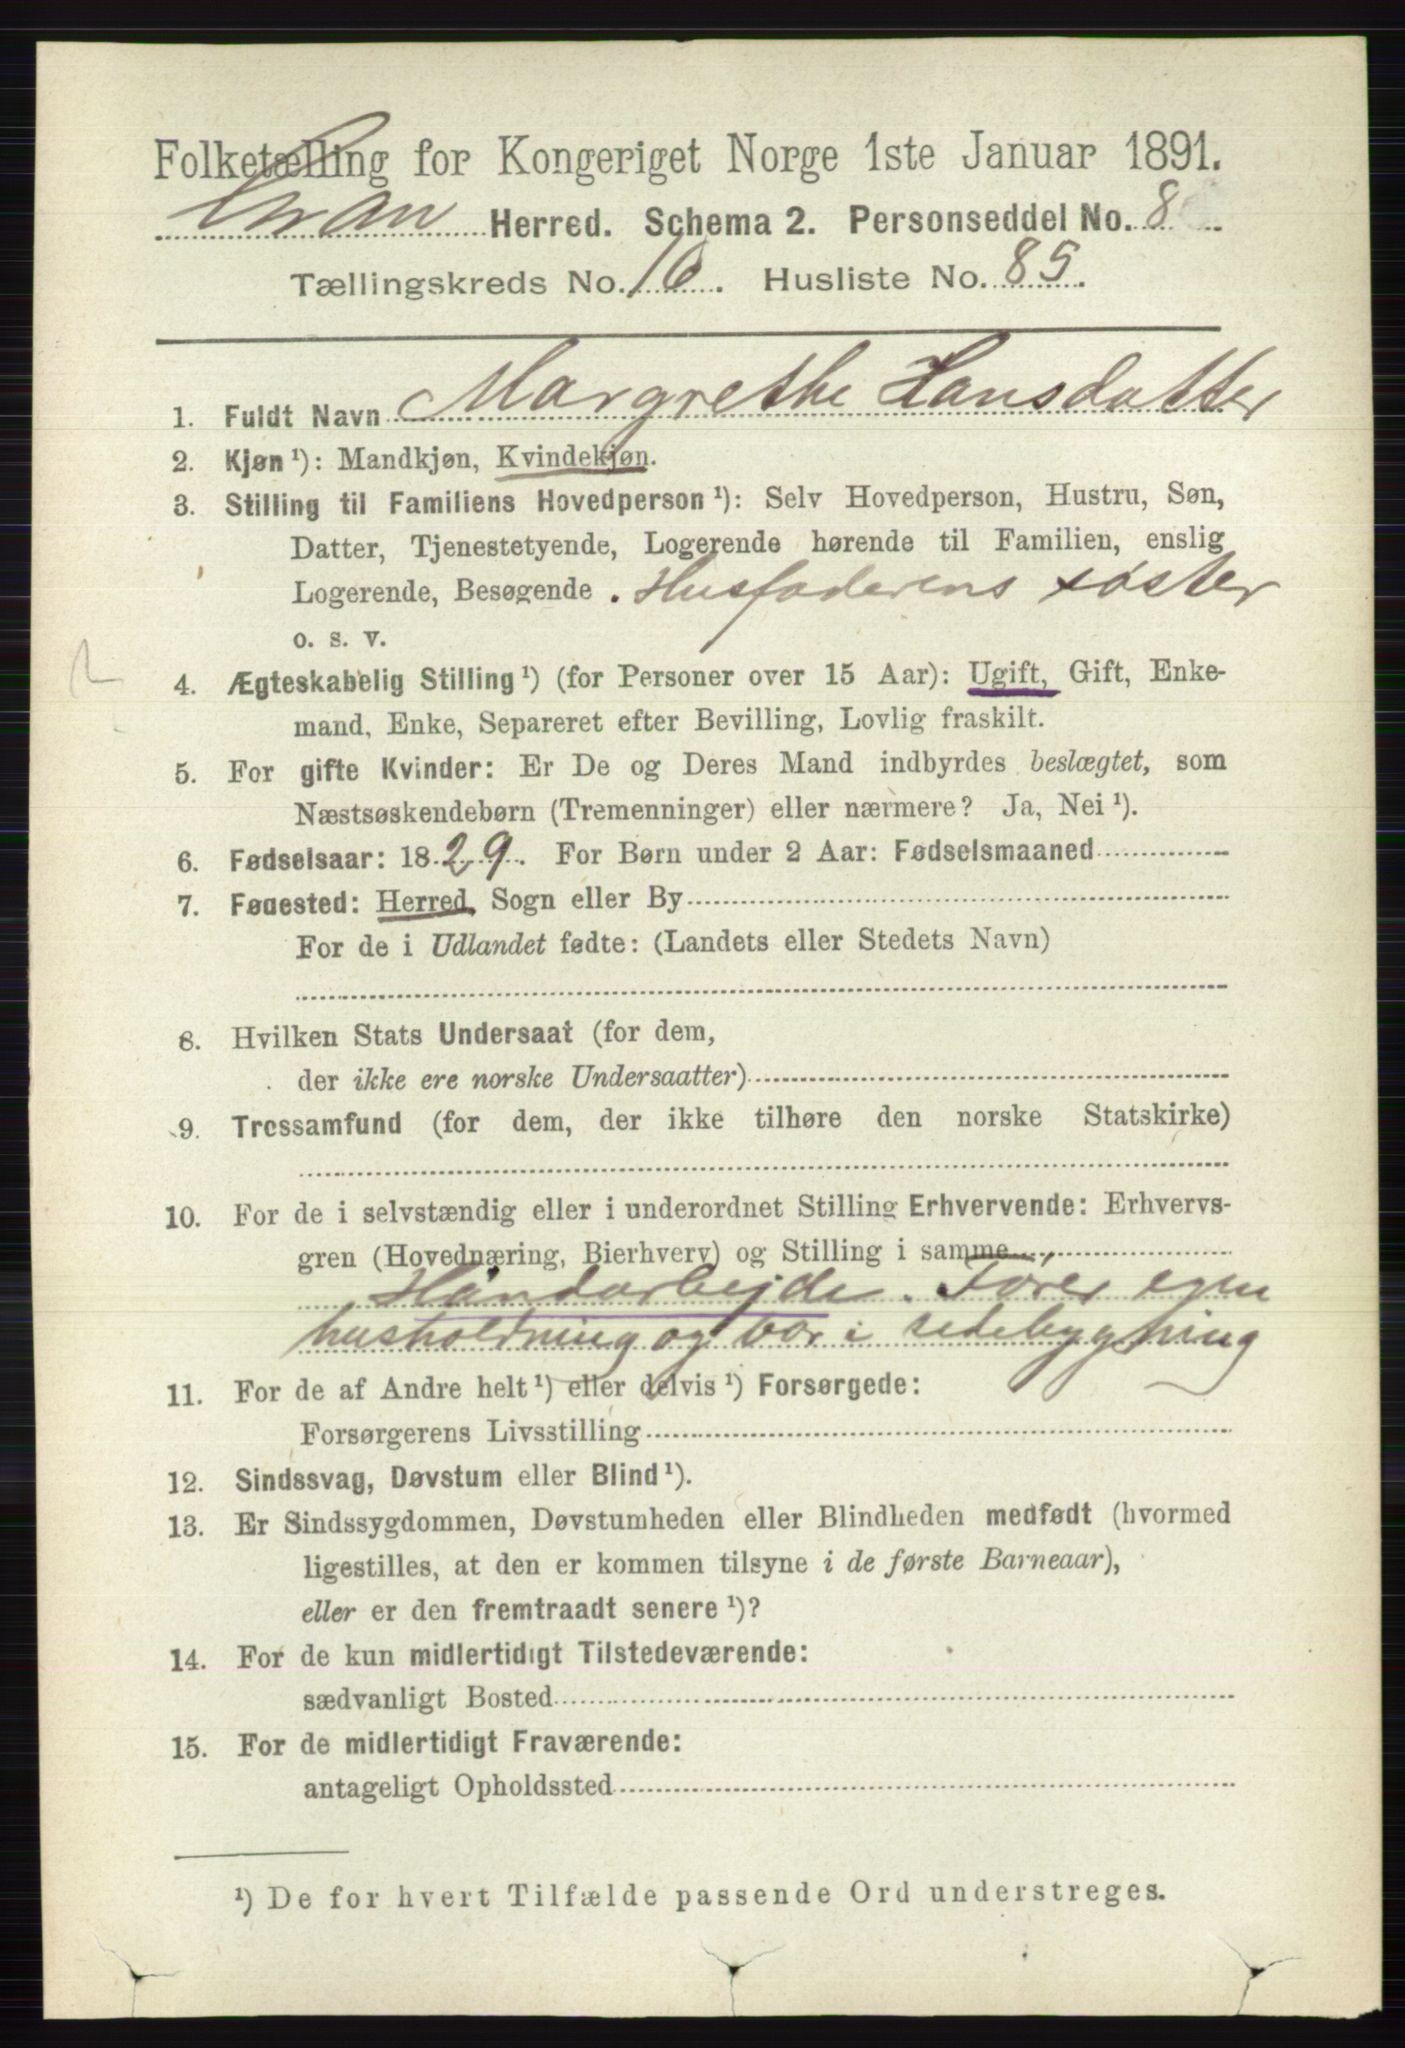 Folketælling for Kongeriget Norge 1ste Januar 1891.
Gran Herred. Schema 2. Personseddel No. 8
Tællingskreds No. 10. Husliste No. 85.
1. Fuldt Navn Margrethe Hansdatter
2. Kjøn ¹): Mandkjøn, Kvindekjøn.
3. Stilling til Familiens Hovedperson ¹): Selv Hovedperson, Hustru, Søn,
Datter, Tjenestetyende, Logerende hørende til Familien, enslig
Logerende, Besøgende . Husfaderens søster
o. s. v.
4. Ægteskabelig Stilling ¹) (for Personer over 15 Aar): Ugift, Gift, Enke-
mand, Enke, Separeret efter Bevilling, Lovlig fraskilt.
5. For gifte Kvinder: Er De og Deres Mand indbyrdes beslægtet, som
Næstsøskendebørn (Tremenninger) eller nærmere? Ja, Nei ¹).
6. Fødselsaar: 1829. For Børn under 2 Aar: Fødselsmaaned
7. Fødested: Herred, Sogn eller By
For de i Udlandet fødte: (Landets eller Stedets Navn)
8. Hvilken Stats Undersaat (for dem,
der ikke ere norske Undersaatter)
9. Trossamfund (for dem, der ikke tilhøre den norske Statskirke)
10. For de i selvstændig eller i underordnet Stilling Erhvervende: Erhvervs-
gren (Hovednæring, Bierhverv) og Stilling i samme
Håndarbejde. Fører egen
husholdning og bor i sidebygning
11. For de af Andre helt ¹) eller delvis ¹) Forsørgede:
Forsørgerens Livsstilling
12. Sindssvag, Døvstum eller Blind ¹).
13. Er Sindssygdommen, Døvstumheden eller Blindheden medfødt (hvormed
ligestilles, at den er kommen tilsyne i de første Barneaar),
eller er den fremtraadt senere ¹)?
14. For de kun midlertidigt Tilstedeværende:
sædvanligt Bosted
15. For de midlertidigt Fraværende:
antageligt Opholdssted
¹) De for hvert Tilfælde passende Ord understreges.